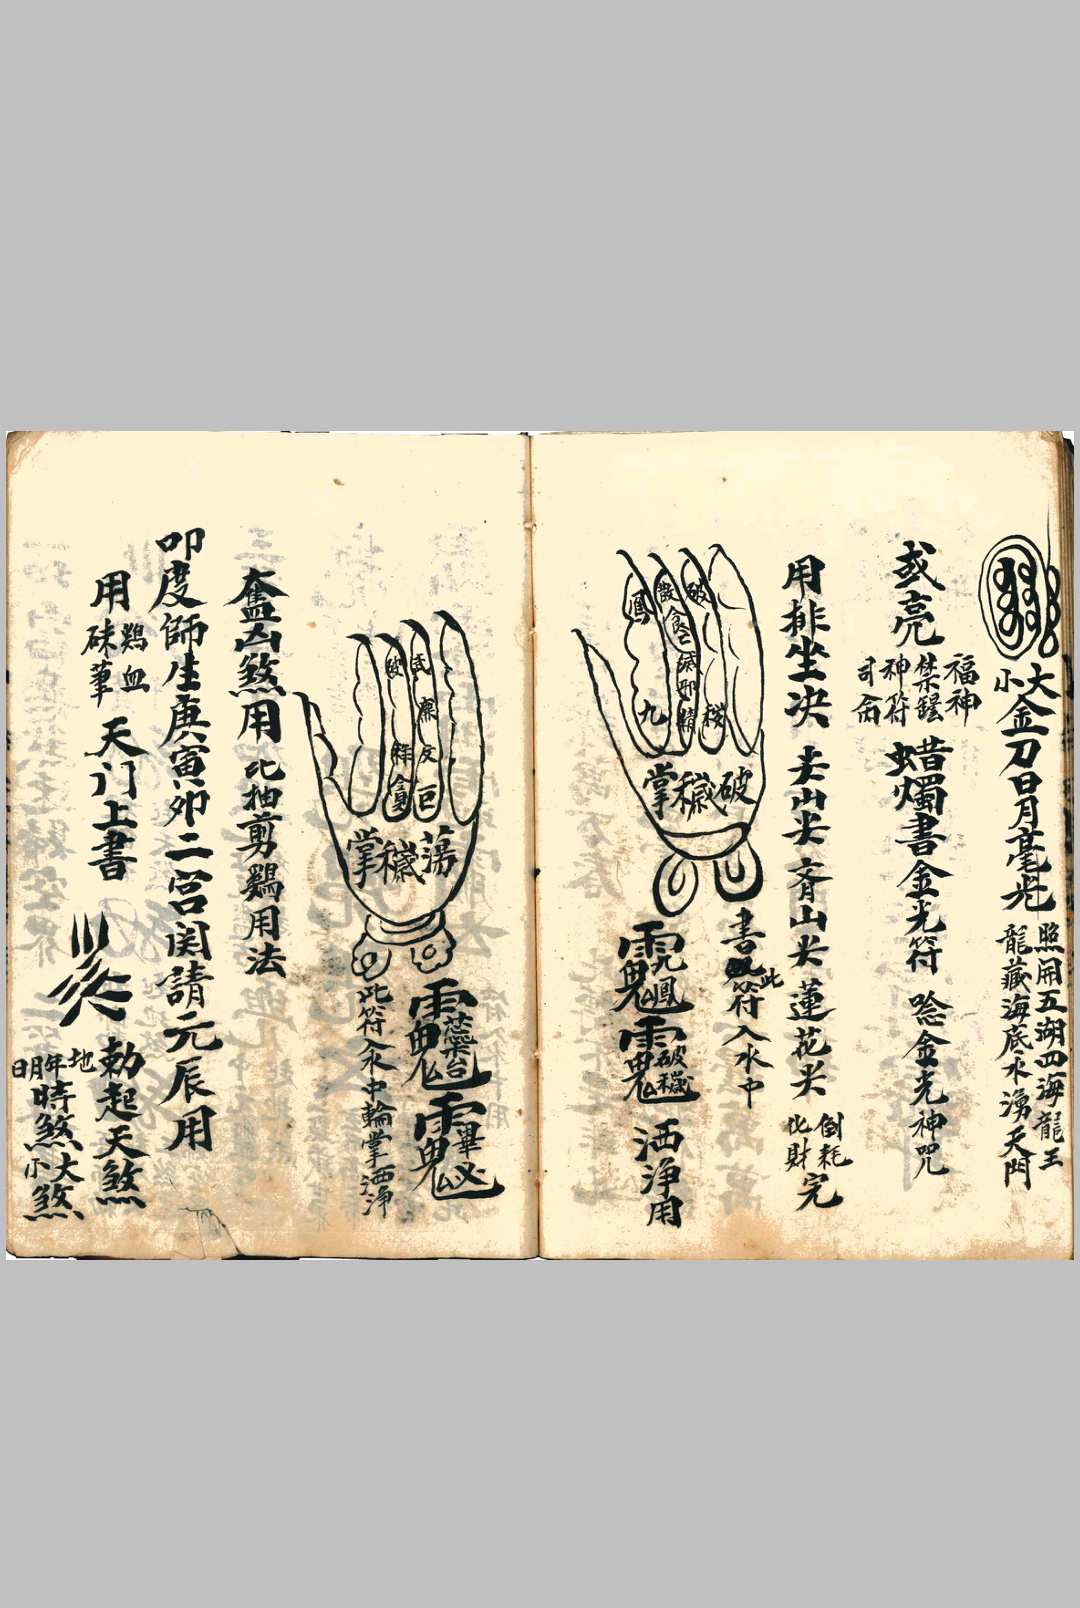 大小金刀日月毫光
照開五湖四海龍王
龍藏海底水湧天門
或亮
福神
神符
司命
蜡燭書金光符
唸金光神咒
用排坐决
山尖斉山尖蓮花尖
倒耗
化財
完
書此符入水中
破穢掌
鳳
破
九
洒浄用
蕩穢掌
武
廉
巨
破
祿
此符入水中輪掌洒浄
凶煞用
比抽剪鷄用法
叩度師生庚寅卯二宮関請元辰用
用
鷄血
硃筆
天门上書
勅起天煞
地
年月日時煞
大小煞